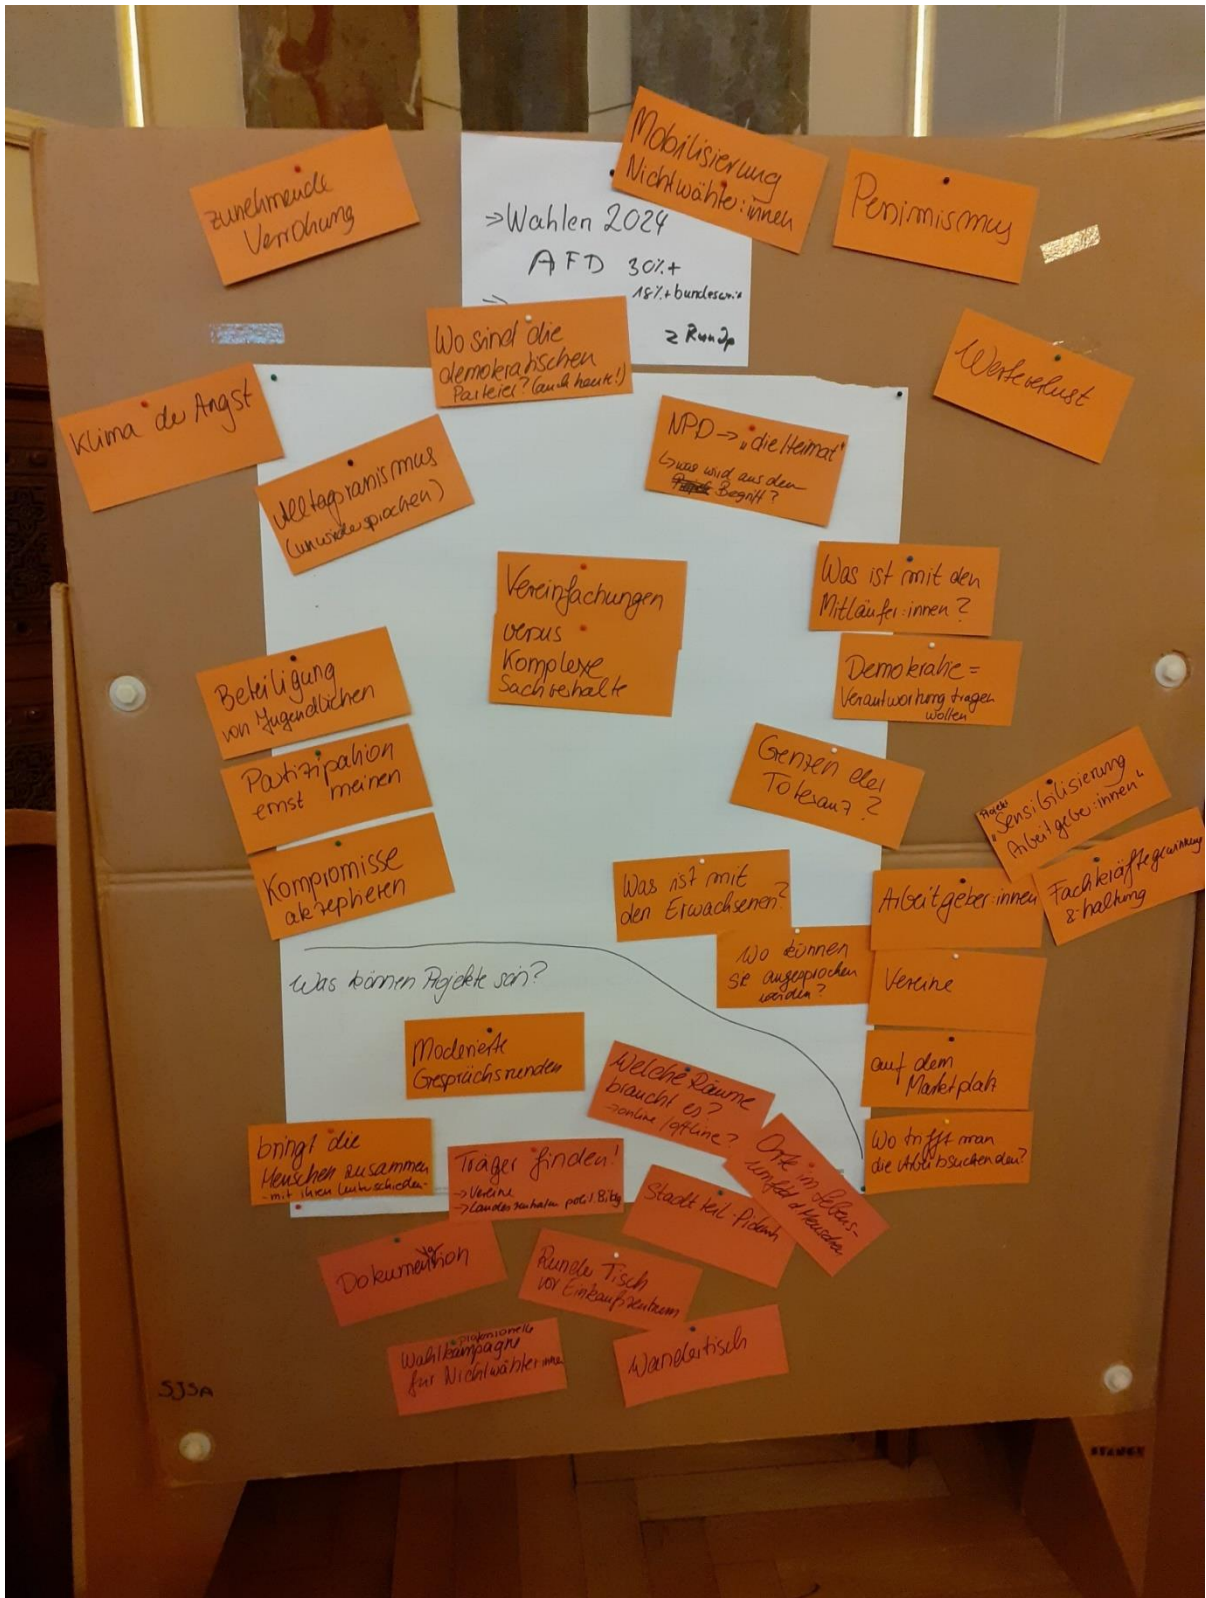 zunehmende
Verrohung
Mobilisierung
Nichtwähler:innen
Pessimismus
=>Wahlen 2024
AFD 30%+
18%+bundesweit
=>
Wo sind die
demokratischen
Parteien? (auch heute!)
Werteverlust
Klima der Angst
Alltagsrassismus
(unwidersprochen)
NPD -> „die Heimat"
↳was wird aus dem
Begriff?
Vereinfachungen
versus
Komplexe
Sachverhalte
Was ist mit den
Mitläufer:innen?
Demokratie =
Verantwortung tragen
wollen
Beteiligung
von Jugendlichen
Partizipation
ernst meinen
Kompromisse
akzeptieren
Grenzen der
Toleranz?
Projekt
„Sensibilisierung
Arbeitgeber:innen"
Fachkräftegewinnung
&-haltung
Was ist mit
den Erwachsenen?
Wo können
sie angesprochen
werden?
Arbeitgeber:innen
Vereine
auf dem
Marktplatz
Wo trifft man
die Arbeitsuchenden?
Was können Projekte sein?
Moderierte
Gesprächsrunden
Welche Räume
braucht es?
->online/offline?
bringt die
Menschen zusammen
-mit ihren Unterschieden-
Träger finden!
->Vereine
->Landeszentralen polit. Bildg
Orte im Lebens-
umfeld d Menschen
Stadtteil-Picknick
Dokumentation
Runder Tisch
vor Einkaufszentrum
professionelle
Wahlkampagne
für Nichtwähler:innen
Wandertisch
SJSA